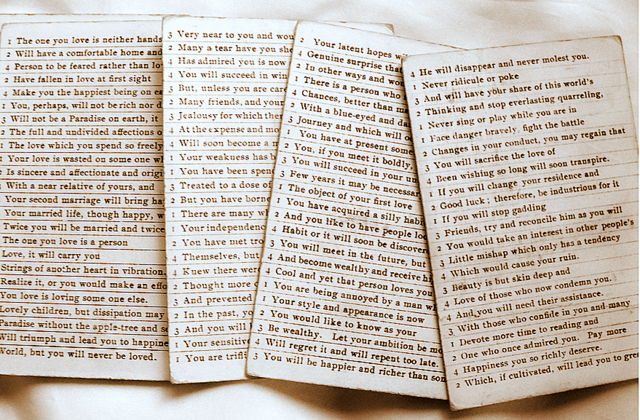 1 The one you love is neither hands
2 Will have a comfortable home and
4 Person to be feared rather than lo
1 Have fallen in love at first sight
4 Make you the happiest being on ea
1 You, perhaps, will not be rich nor d
3 Will not be a Paradise on earth, it
2 The full and undivided affections o
2 The love which you spend so freely
3 Your love is wasted on some one wh
1 Is sincere and affectionate and origi
1 With a near relative of yours, and
Your second marriage will bring ha
Your married life, though happy, w
Twice you will be married and twice
The one you love is a person
Love, it will carry you
Strings of another heart in vibration.
Realize it, or you would make an effo
You love is loving some one else.
Lovely children, but dissipation may
Paradise without the apple-tree and se
Will triumph and lead you to happine
World, but you will never be loved.
3 Very near to you and wou
2 Many a tear have you she
Has admired you is now
4 You will succeed in win
3 But, unless you are car
2 Many friends, and your
3 Jealousy for which ther
4 At the expense and mo
Will soon become a
Your weakness has
2 You have been spen
3 Treated to a dose of
2 But you have borne
1 There are many w
Your independen
2 You have met tro
4 Themselves, but
4 Knew there wer
4 Thought more
3 And prevented
3 In the past, yo
3 And you will
2 Your sensitiv
1 You are trifl
2 Your latent hopes wi
4 Genuine surprise tha
2 In other ways and wo
1 There is a person who
4 Chances, better than
2 With a blue-eyed and da
3 Journey and which will
1 You have at present som
2 You, if you meet it boldly
3 You will succeed in your un
3 Few years it may be necessar
1 The object of your first love
1 You have acquired a silly habi
2 And you like to have people loo
Habit or it will soon be discover
3 You will meet in the future, but
4 And become wealthy and receive h
4 Cool and yet that person loves you
1 You are being annoyed by a man w
1 Your style and appearance is now
2 You would like to know as your
3 Be wealthy. Let your ambition be mo
4 Will regret it and will repent too late.
3 You will be happier and richer than som
4 He will disappear and never molest you.
Never ridicule or poke
3 And will have your share of this world's
2 Thinking and stop everlasting quarreling,
1 Never sing or play while you are in
1 Face danger bravely, fight the battle
2 Changes in your conduct, you may regain that
3 You will sacrifice the love of
4 Been wishing so long will soon transpire.
1 If you will change your residence and
2 Good luck; therefore, be industrious for it
1 If you will stop gadding
3 Friends, try and reconcile him as you will
2 You would take an interest in other people's
3 Little mishap which only has a tendency
4 Which would cause your ruin.
3 Beauty is but skin deep and
4 Love of those who now condemn you.
4 And you will need their assistance.
3 With those who confide in you and many
1 Devote more time to reading and
2 One who once admired you. Pay more
4 Happiness you so richly deserve.
2 Which, if cultivated, will lead you to gre